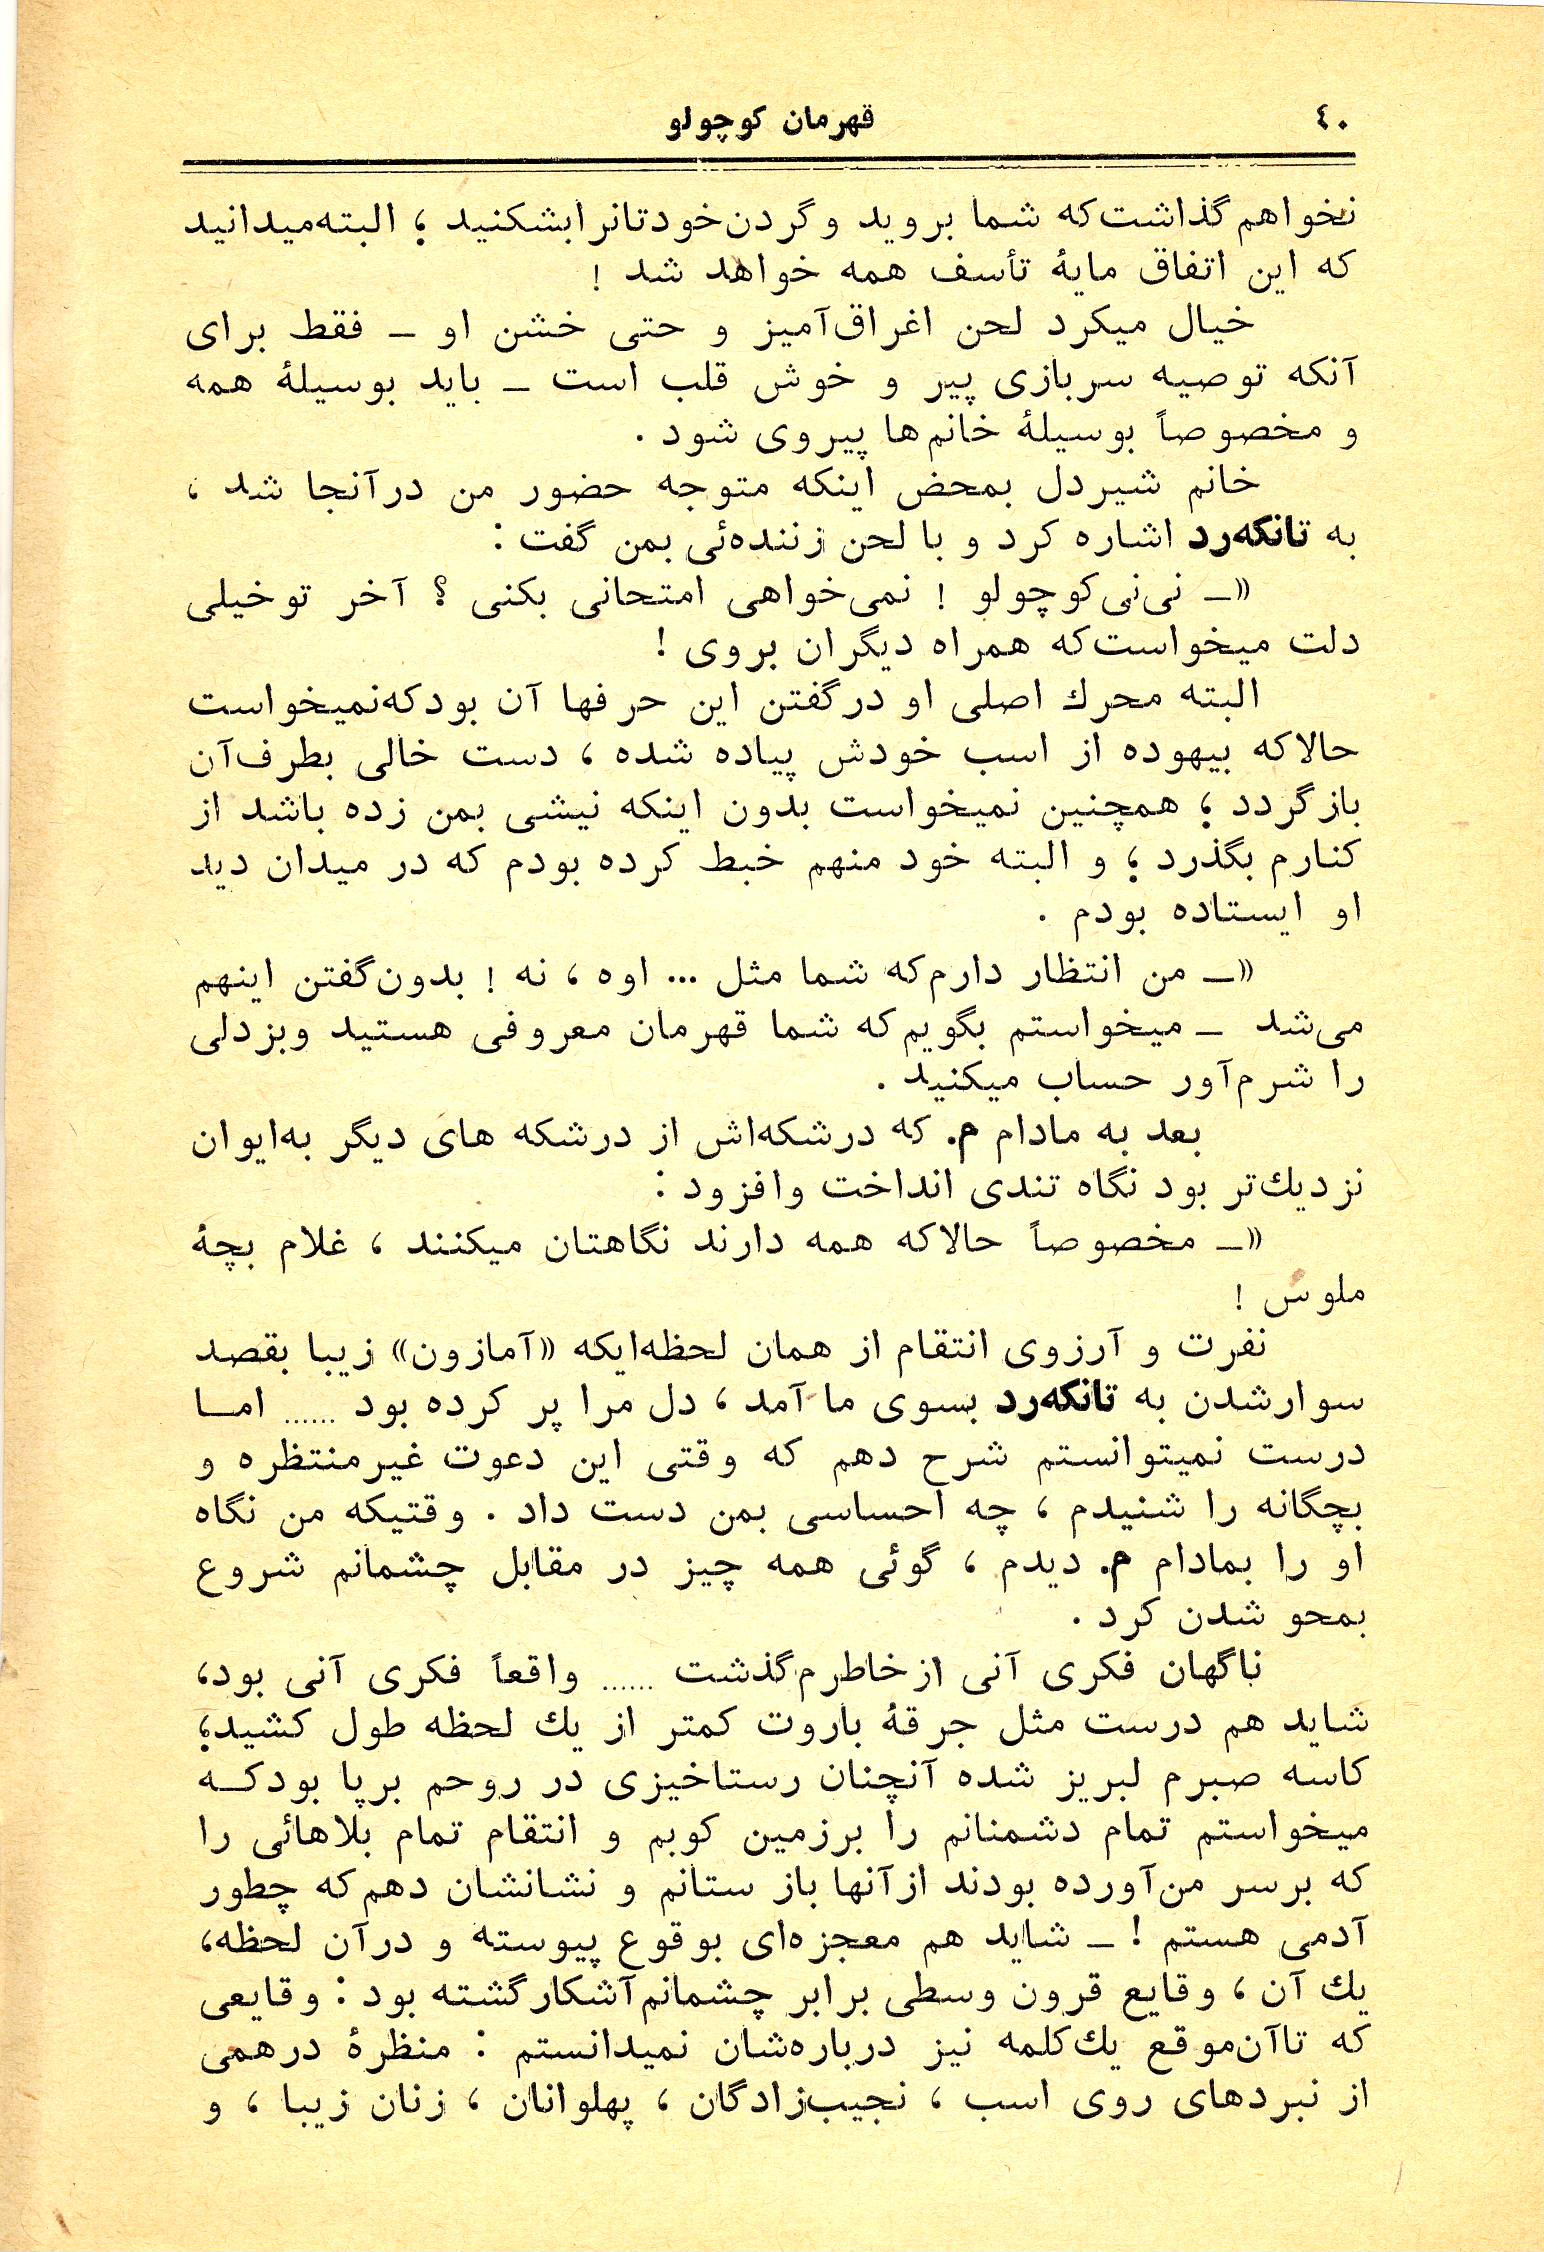 ٤٠
قهرمان کوچولو
نخواهم گذاشت که شما بروید و گردن خودتانرا بشکنید ؛ البته میدانید
که این اتفاق مایهٔ تأسف همه خواهد شد !
خیال میکرد لحن اغراق‌آمیز و حتی خشن او ــ فقط برای
آنکه توصیه سربازی پیر و خوش قلب است ــ باید بوسیلهٔ همه
و مخصوصاً بوسیلهٔ خانم‌ها پیروی شود .
خانم شیردل بمحض اینکه متوجه حضور من درآنجا شد ،
به تانکه‌رد اشاره کرد و با لحن زننده‌ئی بمن گفت :
«ــ نی‌نی کوچولو ! نمی‌خواهی امتحانی بکنی ؟ آخر تو خیلی
دلت میخواست که همراه دیگران بروی !
البته محرك اصلی او درگفتن این حرفها آن بود که نمیخواست
حالا که بیهوده از اسب خودش پیاده شده ، دست خالی بطرف آن
بازگردد ؛ همچنین نمیخواست بدون اینکه نیشی بمن زده باشد از
کنارم بگذرد ؛ و البته خود منهم خبط کرده بودم که در میدان دید
او ایستاده بودم .
«ــ من انتظار دارم که شما مثل ... اوه ، نه ! بدون گفتن اینهم
می‌شد ــ میخواستم بگویم که شما قهرمان معروفی هستید و بزدلی
را شرم‌آور حساب میکنید .
بعد به مادام م. که درشکه‌اش از درشکه های دیگر به‌ایوان
نزدیك‌تر بود نگاه تندی انداخت وافزود :
«ــ مخصوصاً حالا که همه دارند نگاهتان میکنند ، غلام بچهٔ
ملوس !
نفرت و آرزوی انتقام از همان لحظه‌ایکه «آمازون» زیبا بقصد
سوارشدن به تانکه‌رد بسوی ما آمد ، دل مرا پر کرده بود ...... امــا
درست نمیتوانستم شرح دهم که وقتی این دعوت غیرمنتظره و
بچگانه را شنیدم ، چه احساسی بمن دست داد . وقتیکه من نگاه
او را بمادام م. دیدم ، گوئی همه چیز در مقابل چشمانم شروع
بمحو شدن کرد .
ناگهان فکری آنی از خاطرم گذشت ...... واقعاً فکری آنی بود،
شاید هم درست مثل جرقهٔ باروت کمتر از یك لحظه طول کشید؛
کاسه صبرم لبریز شده آنچنان رستاخیزی در روحم برپا بودکــه
میخواستم تمام دشمنانم را برزمین کوبم و انتقام تمام بلاهائی را
که برسر من‌آورده بودند ازآنها باز ستانم و نشانشان دهم که چطور
آدمی هستم ! ــ شاید هم معجزه‌ای بوقوع پیوسته و درآن لحظه،
یك آن ، وقایع قرون وسطی برابر چشمانم آشکار گشته بود : وقایعی
که تاآن‌موقع یك‌کلمه نیز درباره‌شان نمیدانستم : منظرهٔ درهمی
از نبردهای روی اسب ، نجیب‌زادگان ، پهلوانان ، زنان زیبا ، و